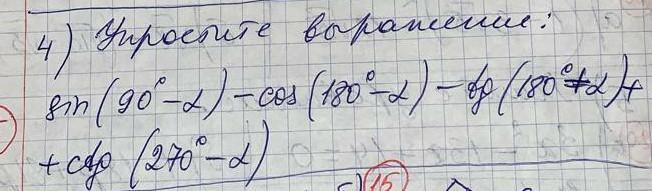 4) Упростите выражение:
sin(90° - α) - cos(180° - α) - tg(180° + α) +
+ ctg(270° - α)
15